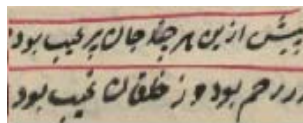 پیش ازین هر چند جان پر عیب بود
در رحم بود و ز خلقان غیب بود